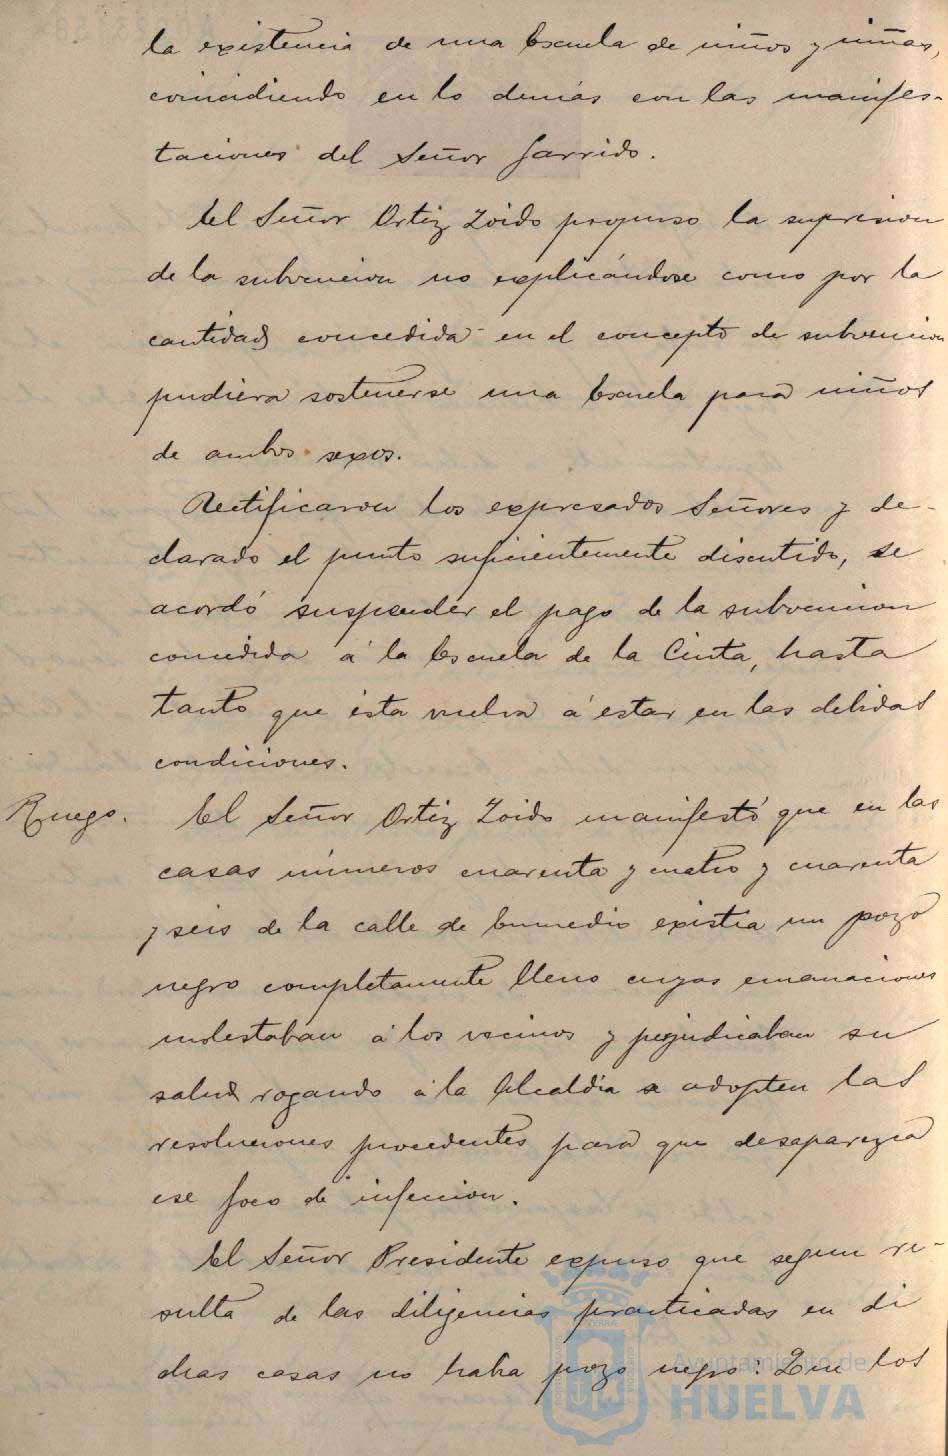 la existencia de una Escuela de niños y niñas,
coincidiendo en lo demás con las manifes-
taciones del Señor Garrido.
El Señor Ortiz Zoido propuso la supresion
de la subvencion no explicándose como por la
cantidad concedida en el concepto de subvencion
pudiera sostenerse una Escuela para niños
de ambos sexos.
Rectificaron los expresados Señores y de-
clarado el punto suficientemente discutido, se
acordó suspender el pago de la subvencion
concedida á la Escuela de la Cinta, hasta
tanto que ésta vuelva á estar en las debidas
condiciones.
Ruego. El Señor Ortiz Zoido manifestó que en las
casas números cuarenta y cuatro y cuarenta
y seis de la calle de Enmedio existia un pozo
negro completamente lleno cuyas emanaciones
molestaban á los vecinos y perjudicaban su
salud rogando á la Alcaldía se adopten las
resoluciones procedentes para que desaparezca
ese foco de infeccion.
El Señor Presidente expuso que segun re-
sulta de las diligencias practicadas en di
chas casas no habia pozo negro: Que los
Ayuntamiento de
HUELVA